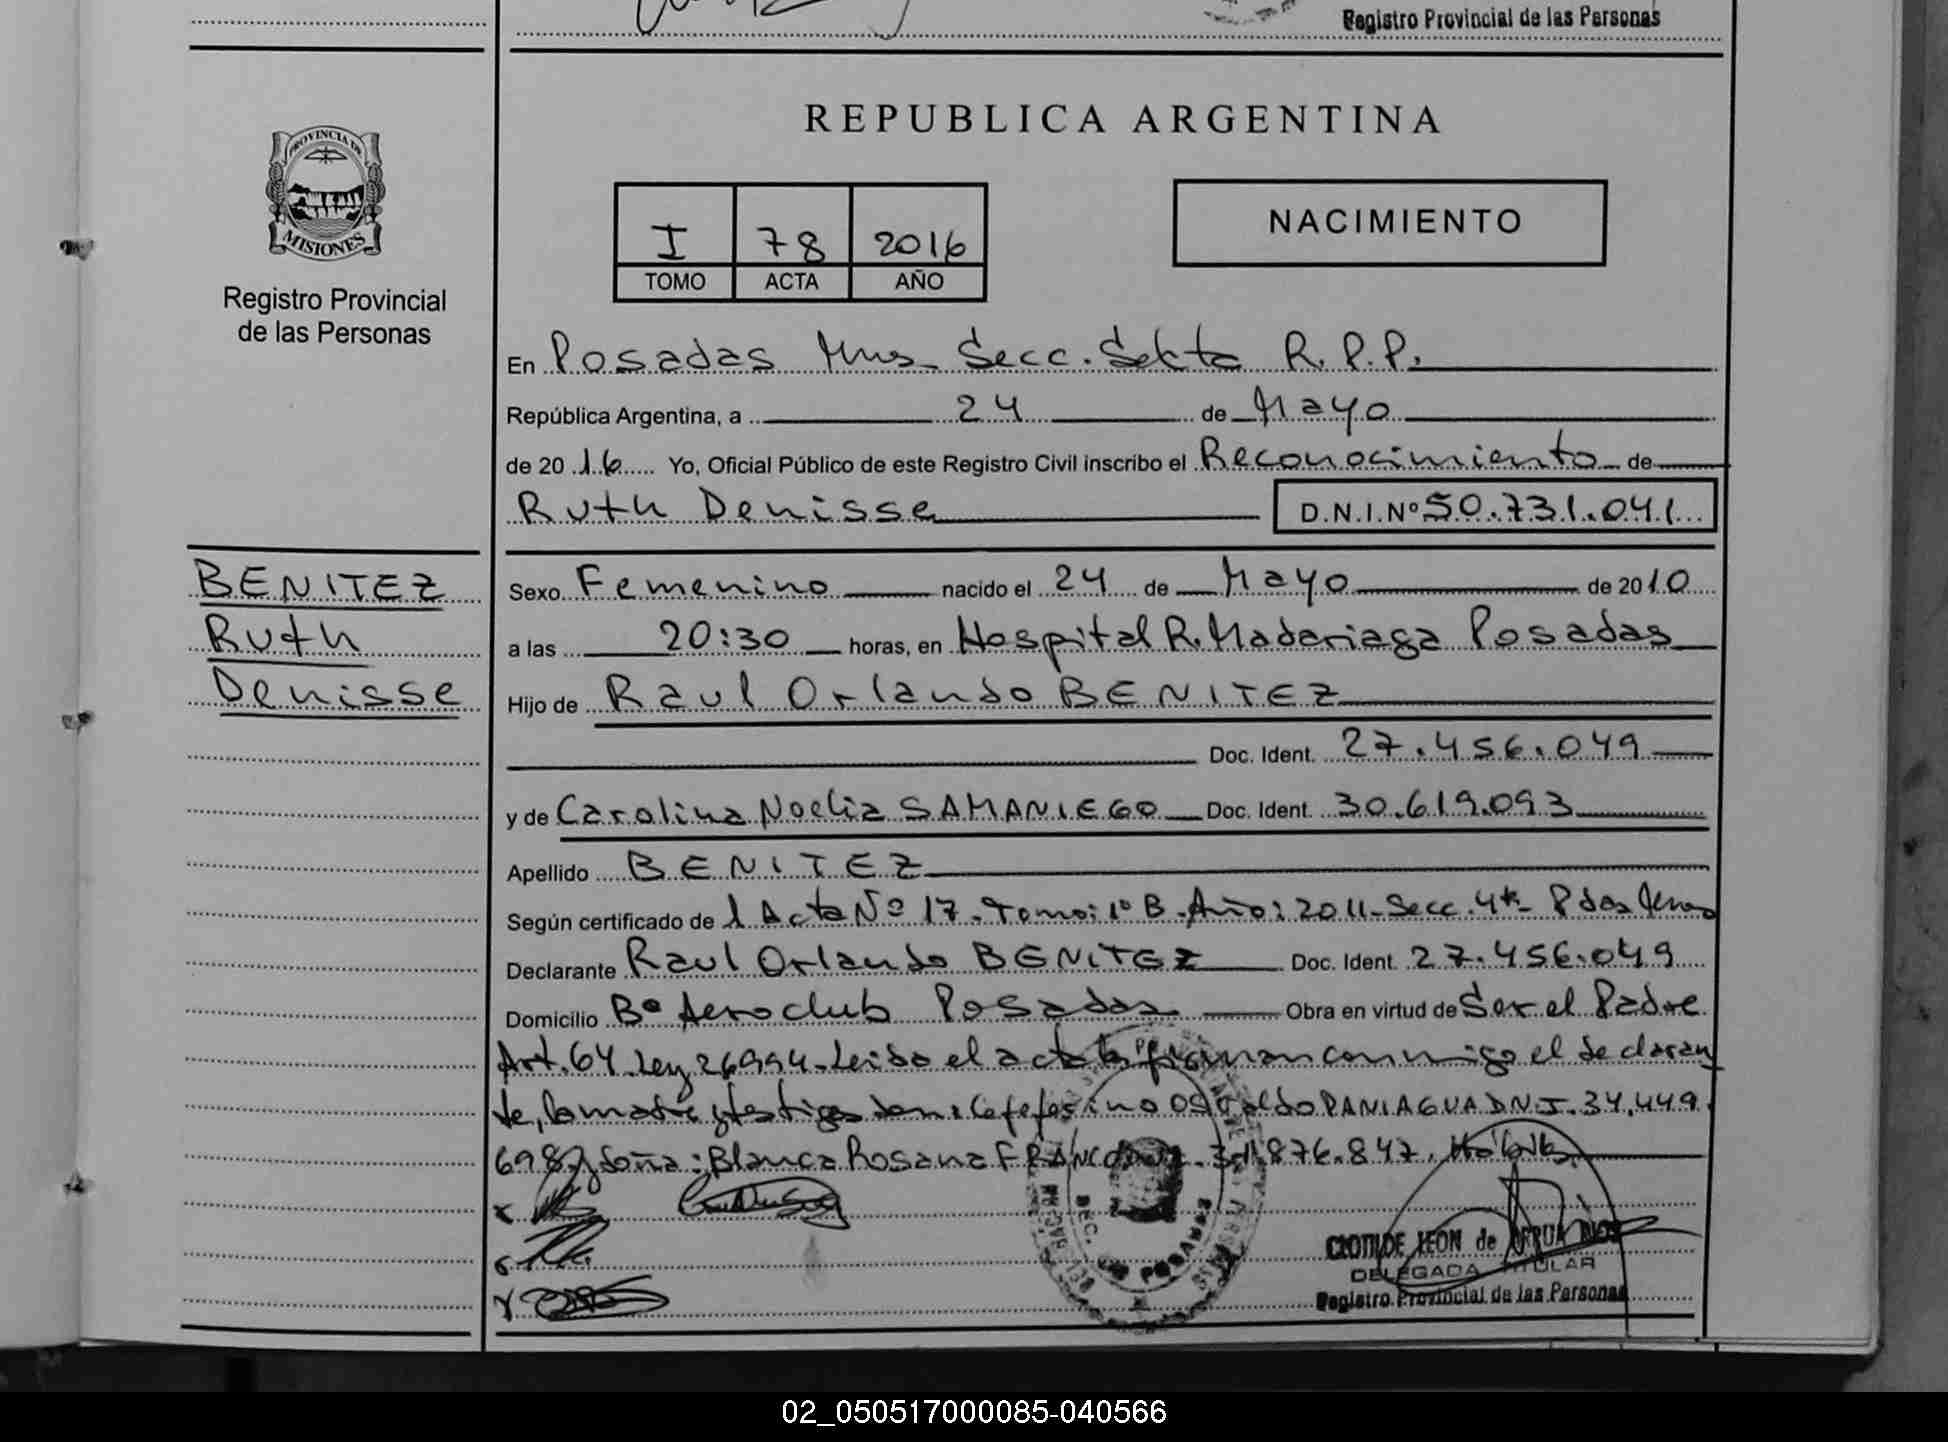 Registro Provincial de las Personas
PROVINCIA DE
MISIONES
Registro Provincial
de las Personas
REPUBLICA ARGENTINA
I 78 2016
TOMO ACTA AÑO
NACIMIENTO
En Posadas Mnes Secc. Sexta R.P.P.
República Argentina, a 24 de Mayo
de 2016 Yo, Oficial Público de este Registro Civil inscribo el Reconocimiento de
Ruth Denisse D.N.I.Nº 50.731.041
BENITEZ
Ruth
Denisse
Sexo Femenino nacido el 24 de Mayo de 2010
a las 20:30 horas, en Hospital R. Madariaga Posadas
Hijo de Raul Orlando BENITEZ
Doc. Ident. 27.456.049
y de Carolina Noelia SAMANIEGO Doc. Ident. 30.619.093
Apellido BENITEZ
Según certificado de l Acta Nº 17. Tomo: 1º B. Año: 2011. Secc. 4ta Pdas Mnes
Declarante Raul Orlando BENITEZ Doc. Ident. 27.456.049
Domicilio Bº Aeroclub Posadas Obra en virtud de Ser el Padre
Art. 64. Ley 26994. Leido el acta la firman conmigo el declaran
te, la madre y testigos don: Ceferino Osvaldo PANIAGUA DNI. 34.449.
698 y doña: Blanca Rosana FRANCO DNI. 876.847.
CLOTILDE LEON de ARRUA RIOS
DELEGADA TITULAR
Registro Provincial de las Personas
POSADAS
02_050517000085-040566